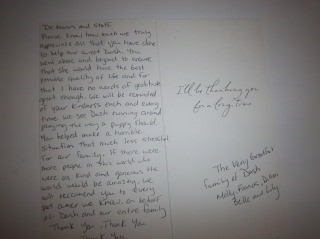 Dr. and Staff
Please know how much we truly
appreciate all that you have done
to help our sweet Dash. You
went above and beyond to ensure
that she would have the best
possible quality of life and for
that I have no words of gratitude
great enough. We will be reminded
of your kindness each and every
time we see Dash running around
playing the way a puppy should.
You helped make a horrible
situation that much less stressful
for our family. If there were
more people in this world who
were as kind and generous the
world would be amazing. We
will recommend you to every
pet owner we know. on behalf
of Dash and our entire family
Thank you, Thank You
Thank You
I'll be thanking you
for a long time
The Very Grateful
family of Dash
Molly, France, Dilan
Belle and Lily